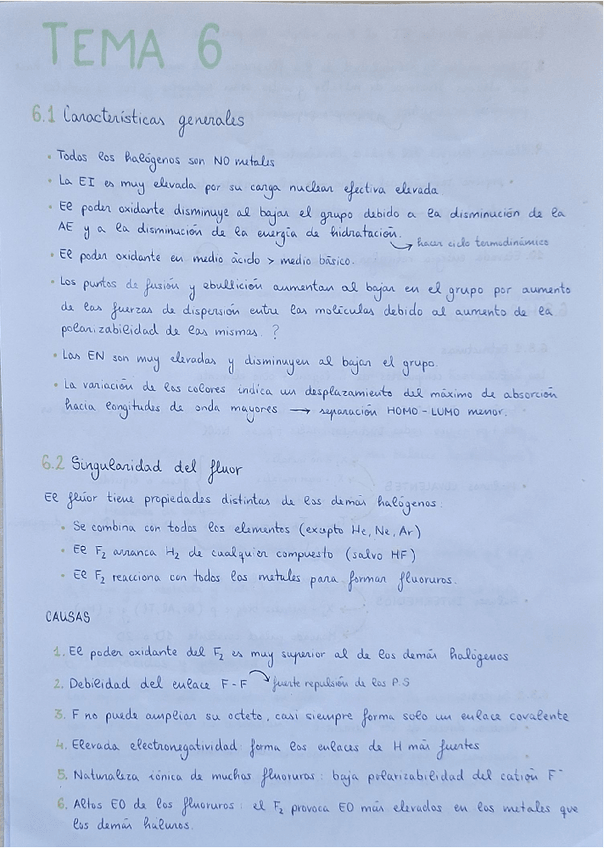 TEMA 6
6.1 Características generales
• Todos los halógenos son NO metales
• La EI es muy elevada por su carga nuclear efectiva elevada
• El poder oxidante disminuye al bajar el grupo debido a la disminución de la
AE y a la disminución de la energía de hidratación.
→ hacer ciclo termodinámico
• El poder oxidante en medio ácido > medio básico.
• Los puntos de fusión y ebullición aumentan al bajar en el grupo por aumento
de las fuerzas de dispersión entre las moléculas debido al aumento de la
polarizabilidad de las mismas. ?
• Las EN son muy elevadas y disminuyen al bajar el grupo.
• La variación de los colores indica un desplazamiento del máximo de absorción
hacia longitudes de onda mayores → separación HOMO-LUMO menor.
6.2 Singularidad del flúor
El flúor tiene propiedades distintas de los demás halógenos.
• Se combina con todos los elementos (excepto He, Ne, Ar)
• El F₂ arranca H₂ de cualquier compuesto (salvo HF)
• El F₂ reacciona con todos los metales para formar fluoruros.
CAUSAS
1. El poder oxidante del F₂ es muy superior al de los demás halógenos
2. Debilidad del enlace F-F → fuerte repulsión de los P.S
3. F no puede ampliar su octeto, casi siempre forma solo un enlace covalente
4. Elevada electronegatividad: forma los enlaces de H más fuertes
5. Naturaleza iónica de muchos fluoruros: baja polarizabilidad del catión F⁻
6. Altos EO de los fluoruros: el F₂ provoca EO más elevados en los metales que
los demás haluros.